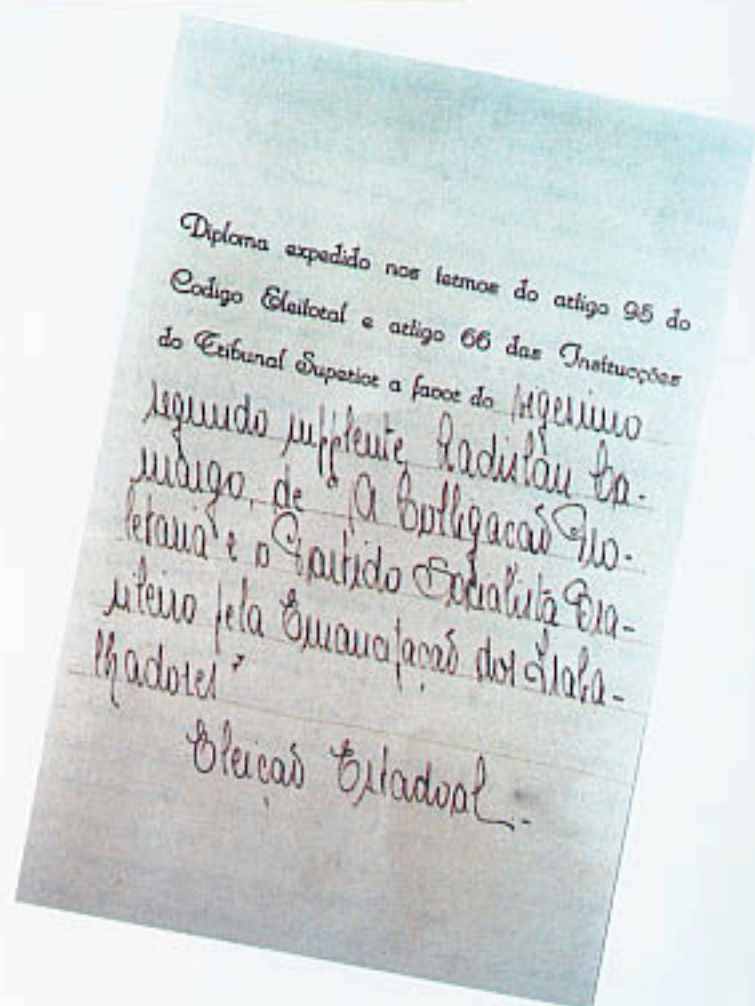 Diploma expedido nos termos do artigo 95 do
Codigo Eleitoral e artigo 66 das Instrucções
do Tribunal Superior a favor do vigesimo
segundo supplente, Ladislau Ca-
margo, de "A Colligação Pro-
letaria e o Partido Socialista Bra-
sileiro pela Emancipação dos Traba-
lhadores"
Eleição Estadoal.